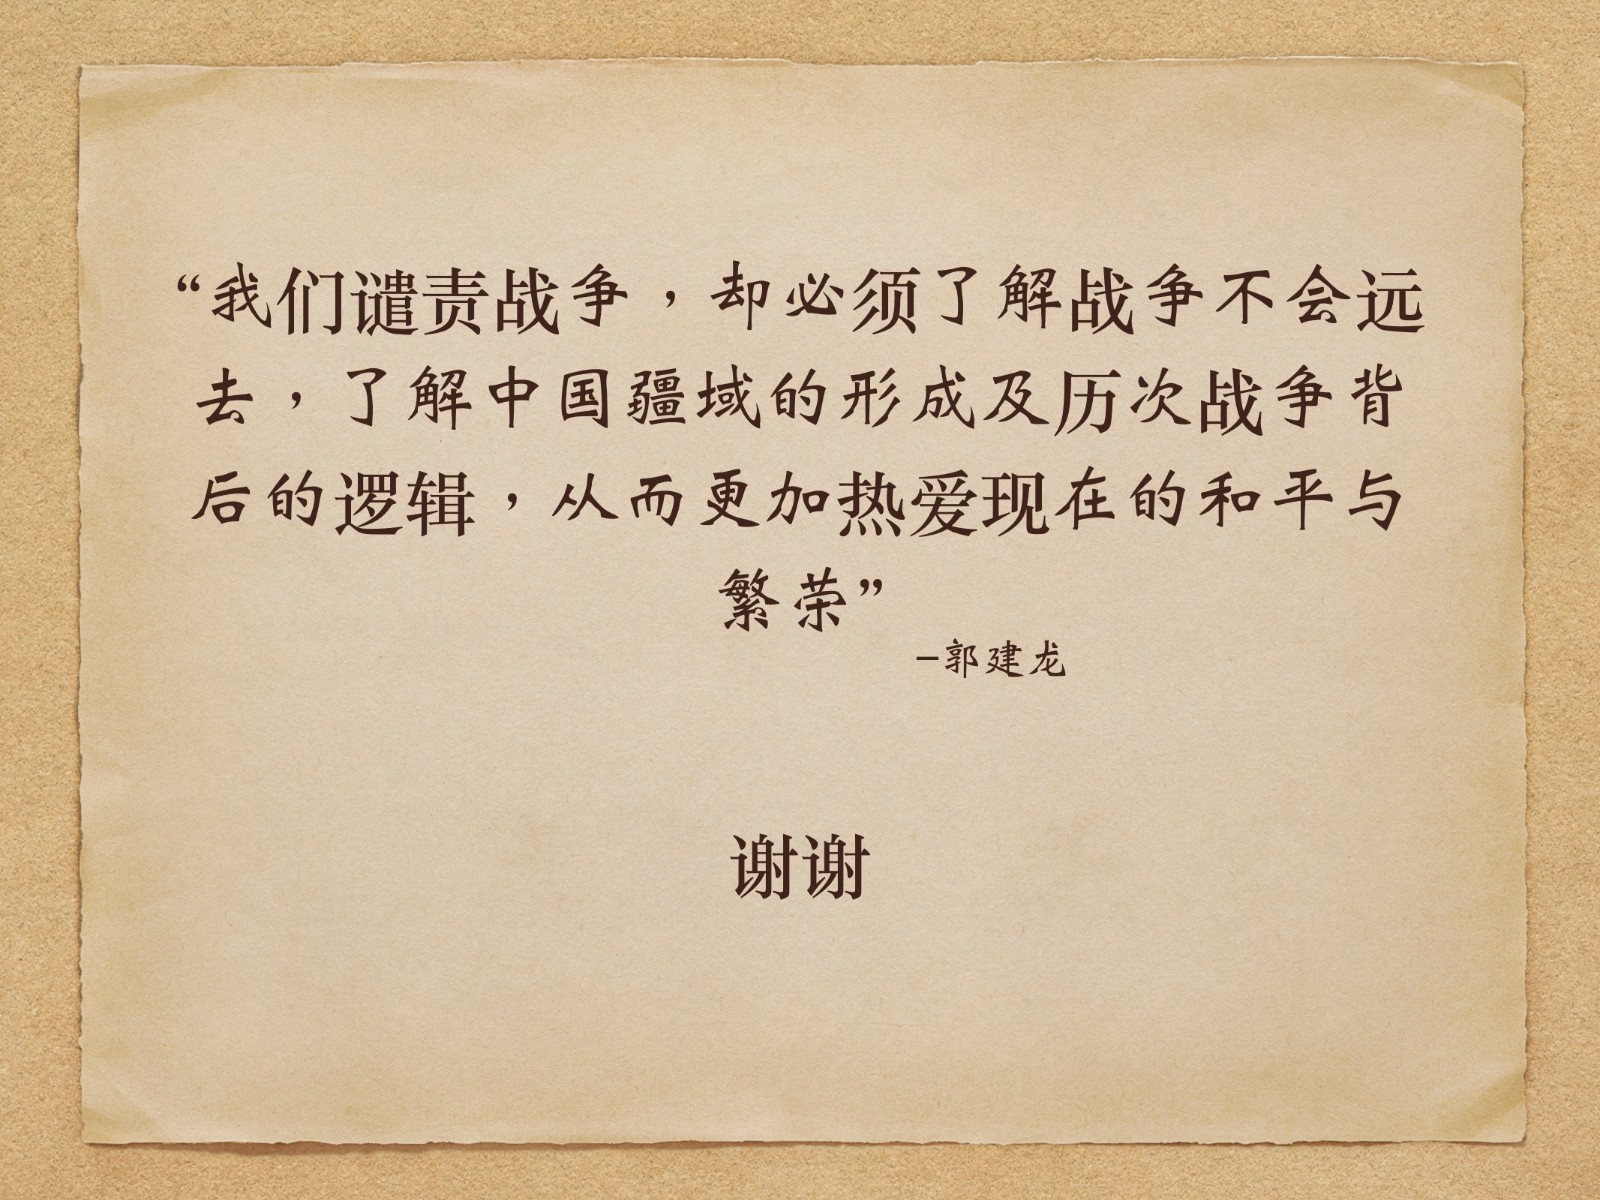 “我们谴责战争，却必须了解战争不会远
去，了解中国疆域的形成及历次战争背
后的逻辑，从而更加热爱现在的和平与
繁荣”
–郭建龙
谢谢